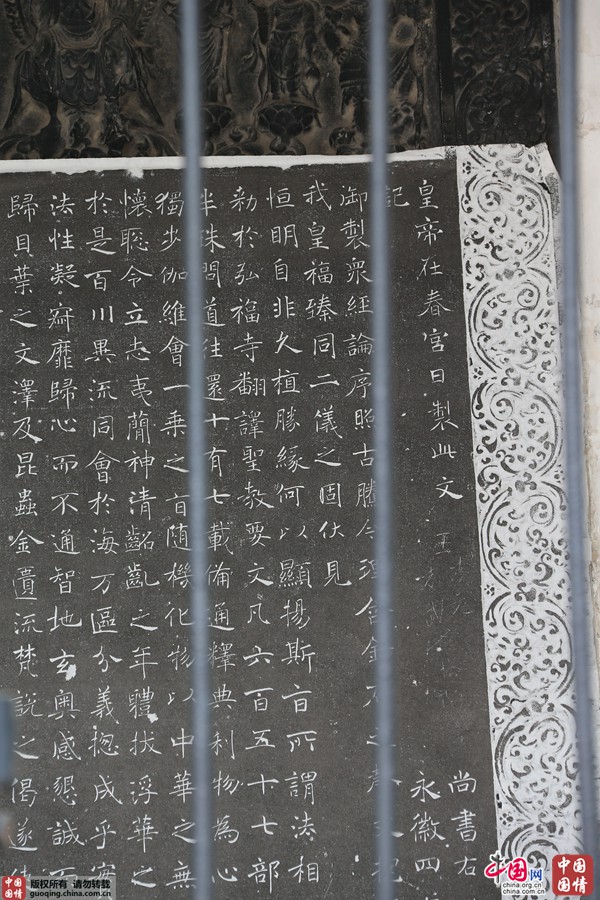 歸貝葉之文澤及昆蟲金遺流梵說之偈遂
法性凝寂靡歸心而不通智地玄奧感懇誠而
於是百川異流同會於海万區分義揔成乎實
懷聡令立志夷蕳神清齠齓之年體拔浮華之
獨步伽維會一乗之旨隨機化物以中華之無
半珠問道往還十有七載備通釋典利物為心
勑於弘福寺翻譯聖教要文凡六百五十七部
恒明自非久植勝緣何以顯揚斯旨所謂法相
我皇福臻同二儀之固伏見
御製眾經論序照古騰今理含金石之聲文
記
皇帝在春宮日製此文
永徽四
尚書右
中国国情
版权所有 请勿转载
guoqing.china.com.cn
中国网
china.org.cn
china.com.cn
中国国情